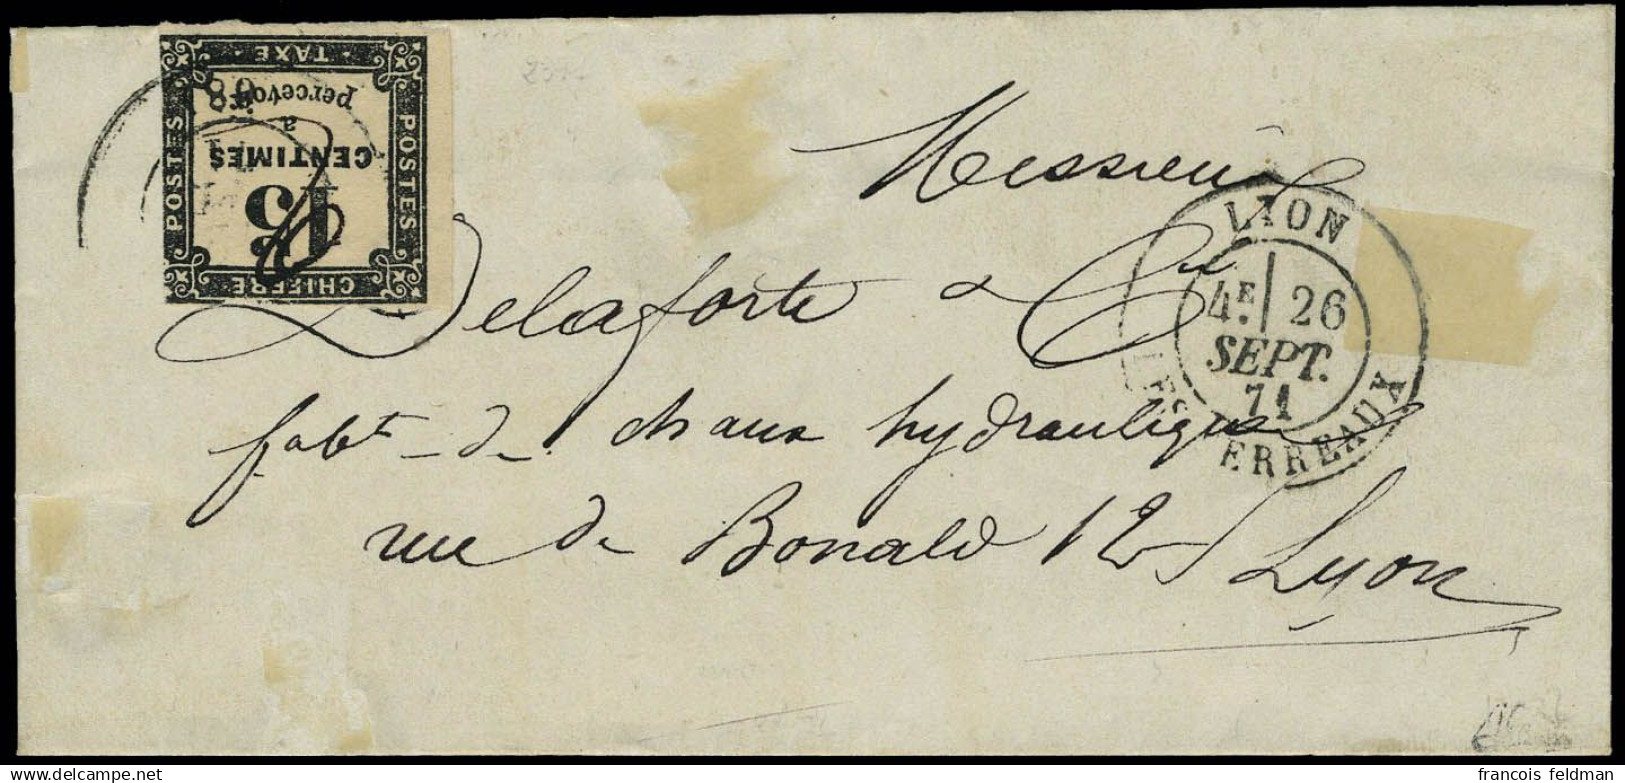 CHIFFRE
POSTES
POSTES
TAXE
15
CENTIMES
a
percevoir
Messieurs
Delaforte & Cie
fabt de chaux hydraulique
rue de Bonald 12 Lyon
LYON
4E. 26
SEPT.
71
LES TERREAUX
delcampe.net
francois feldman